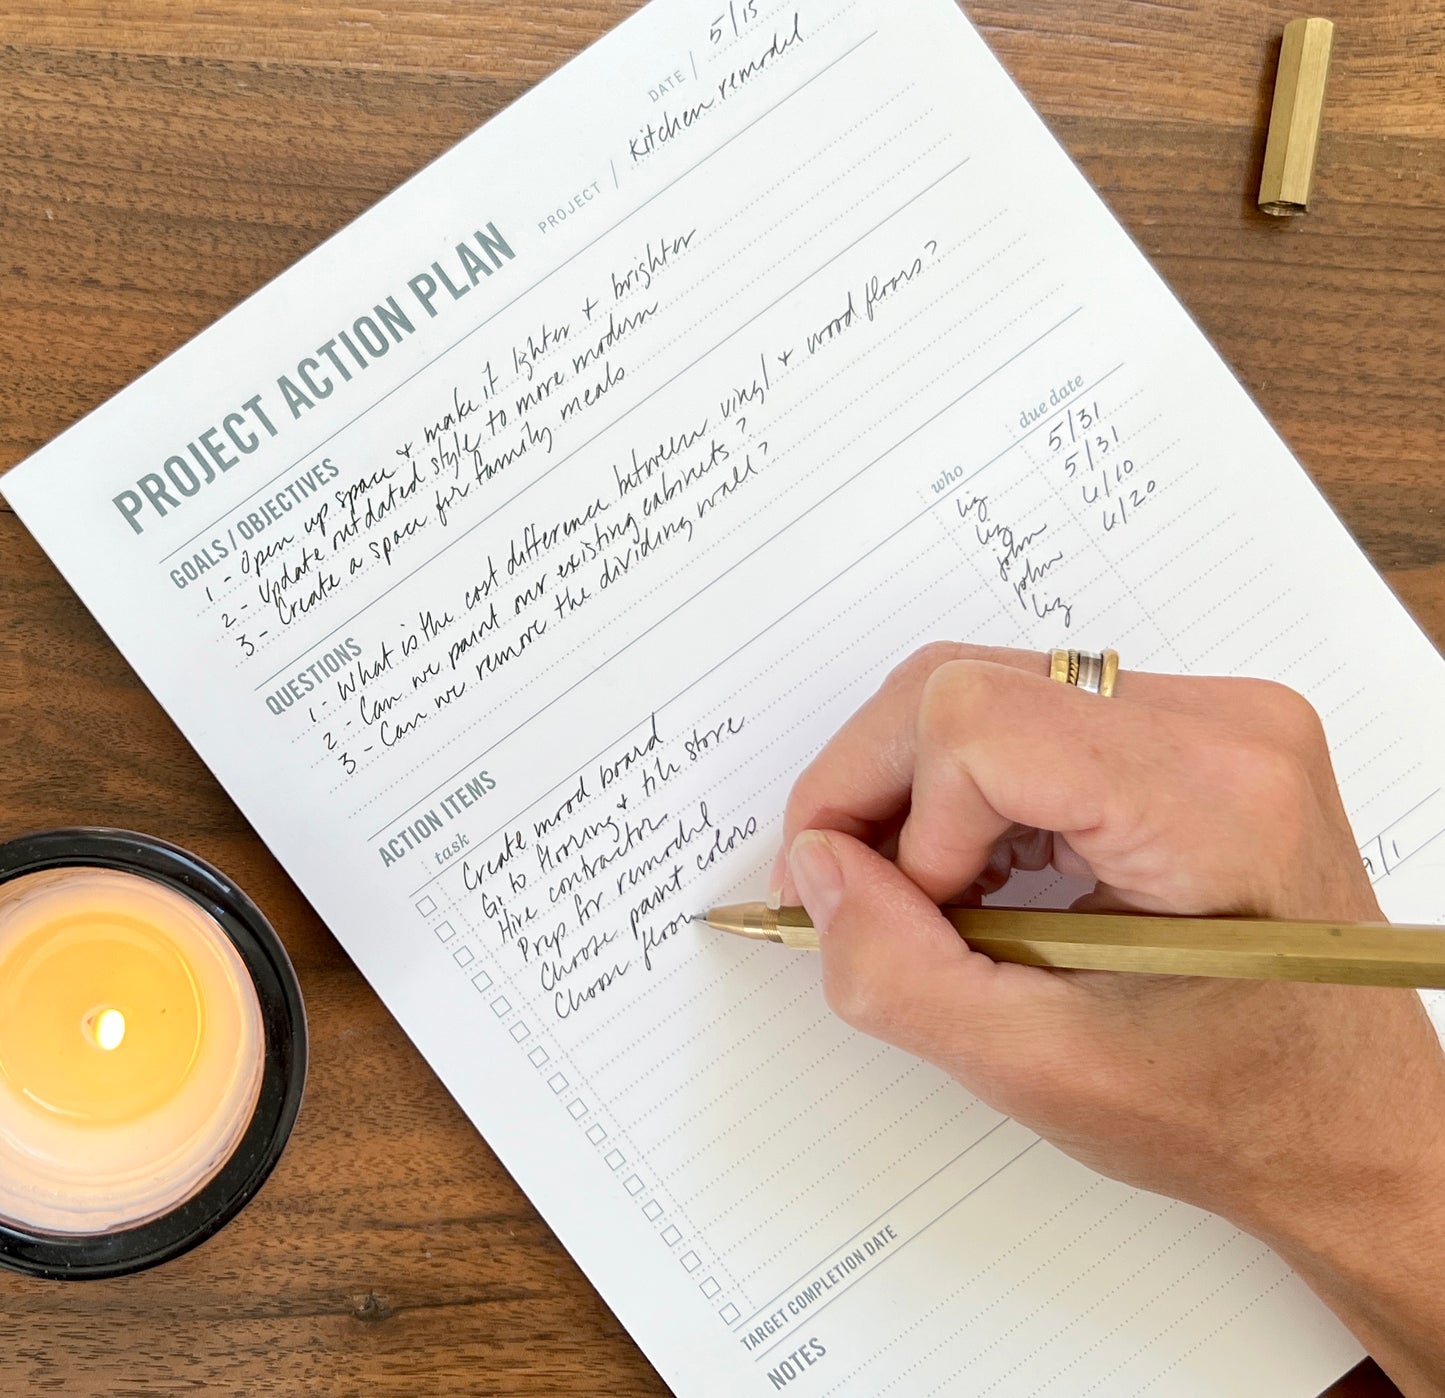 DATE / 5/15
PROJECT ACTION PLAN PROJECT / Kitchen remodel
GOALS / OBJECTIVES
1 - Open up space + make it lighter + brighter
2 - Update outdated style to more modern
3 - Create a space for family meals
QUESTIONS
1 - What is the cost difference between vinyl + wood floors?
2 - Can we paint our existing cabinets?
3 - Can we remove the dividing wall?
ACTION ITEMS
task who due date
Create mood board liz 5/31
Go to flooring + tile store liz 5/31
Hire contractor John 6/10
Prep for remodel John 6/20
Choose paint colors liz
Choose floor
TARGET COMPLETION DATE 9/1
NOTES